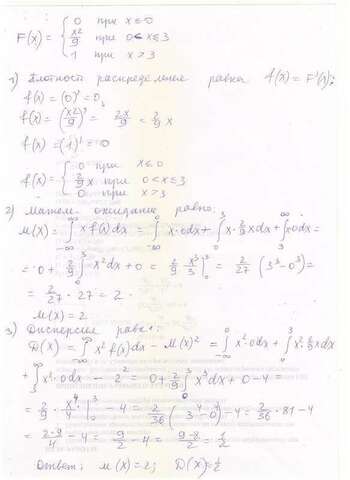 F(x) = { 0 при x ≤ 0
x²/9 при 0 < x ≤ 3
1 при x > 3
1) Плотность распределения равна f(x) = F'(x):
f(x) = (0)' = 0,
f(x) = (x²/9)' = 2x/9 = 2/9 x
f(x) = (1)' = 0
f(x) = { 0 при x ≤ 0
2/9 x при 0 < x ≤ 3
0 при x > 3
2) Матем. ожидание равно:
M(x) = ∫_{-∞}^{∞} x f(x) dx = ∫_{-∞}^{0} x·0 dx + ∫_0^3 x · 2/9 x dx + ∫_3^∞ 0 dx =
= 0 + 2/9 ∫_0^3 x² dx + 0 = 2/9 · x³/3 |_0^3 = 2/27 (3³ - 0³) =
= 2/27 · 27 = 2.
M(x) = 2
3) Дисперсия равна:
D(x) = ∫_{-∞}^{∞} x² f(x) dx - M(x)² = ∫_{-∞}^{0} x²·0 dx + ∫_0^3 x² · 2/9 x dx
+ ∫_3^∞ x²·0 dx - 2² = 0 + 2/9 ∫_0^3 x³ dx + 0 - 4 =
= 2/9 · x⁴/4 |_0^3 - 4 = 2/36 (3⁴ - 0⁴) - 4 = 2/36 · 81 - 4
= 2·9/4 - 4 = 9/2 - 4 = 9-8/2 = 1/2
Ответ: M(x) = 2; D(x) = 1/2